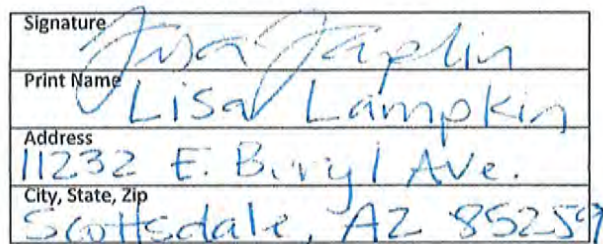 Signature
Lisa
Print Name
Lisa Lampkin
Address
11232 E. Beryl Ave.
City, State, Zip
Scottsdale, AZ 85259